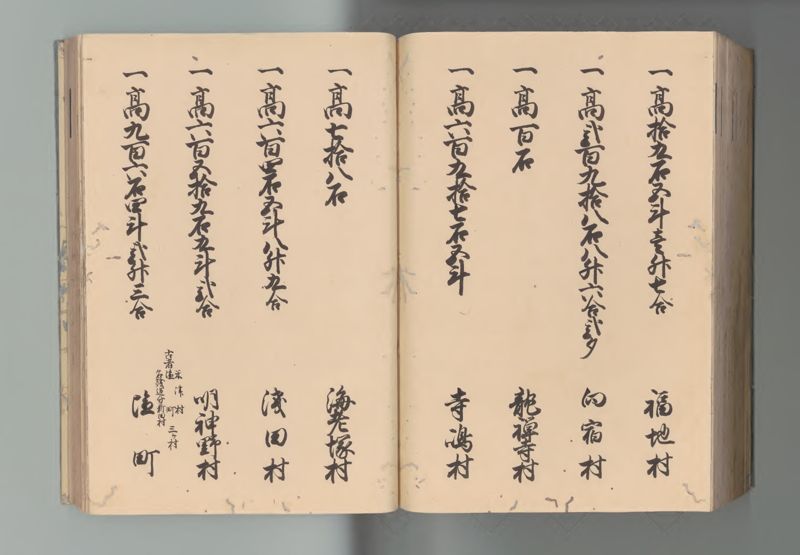 一高拾九石五斗壱升七合 福地村
一高弐百九拾八石八升六合弐夕 向宿村
一高百石 龍禅寺村
一高六百九拾七石五斗 寺嶋村
一高七拾八石 海老塚村
一高六百四石五斗八升九合 浅田村
一高六百五拾九石九斗弐合 明神野村
一高九百六石四斗弐升三合 町
古者 米津村
町 三ヶ村
新田村